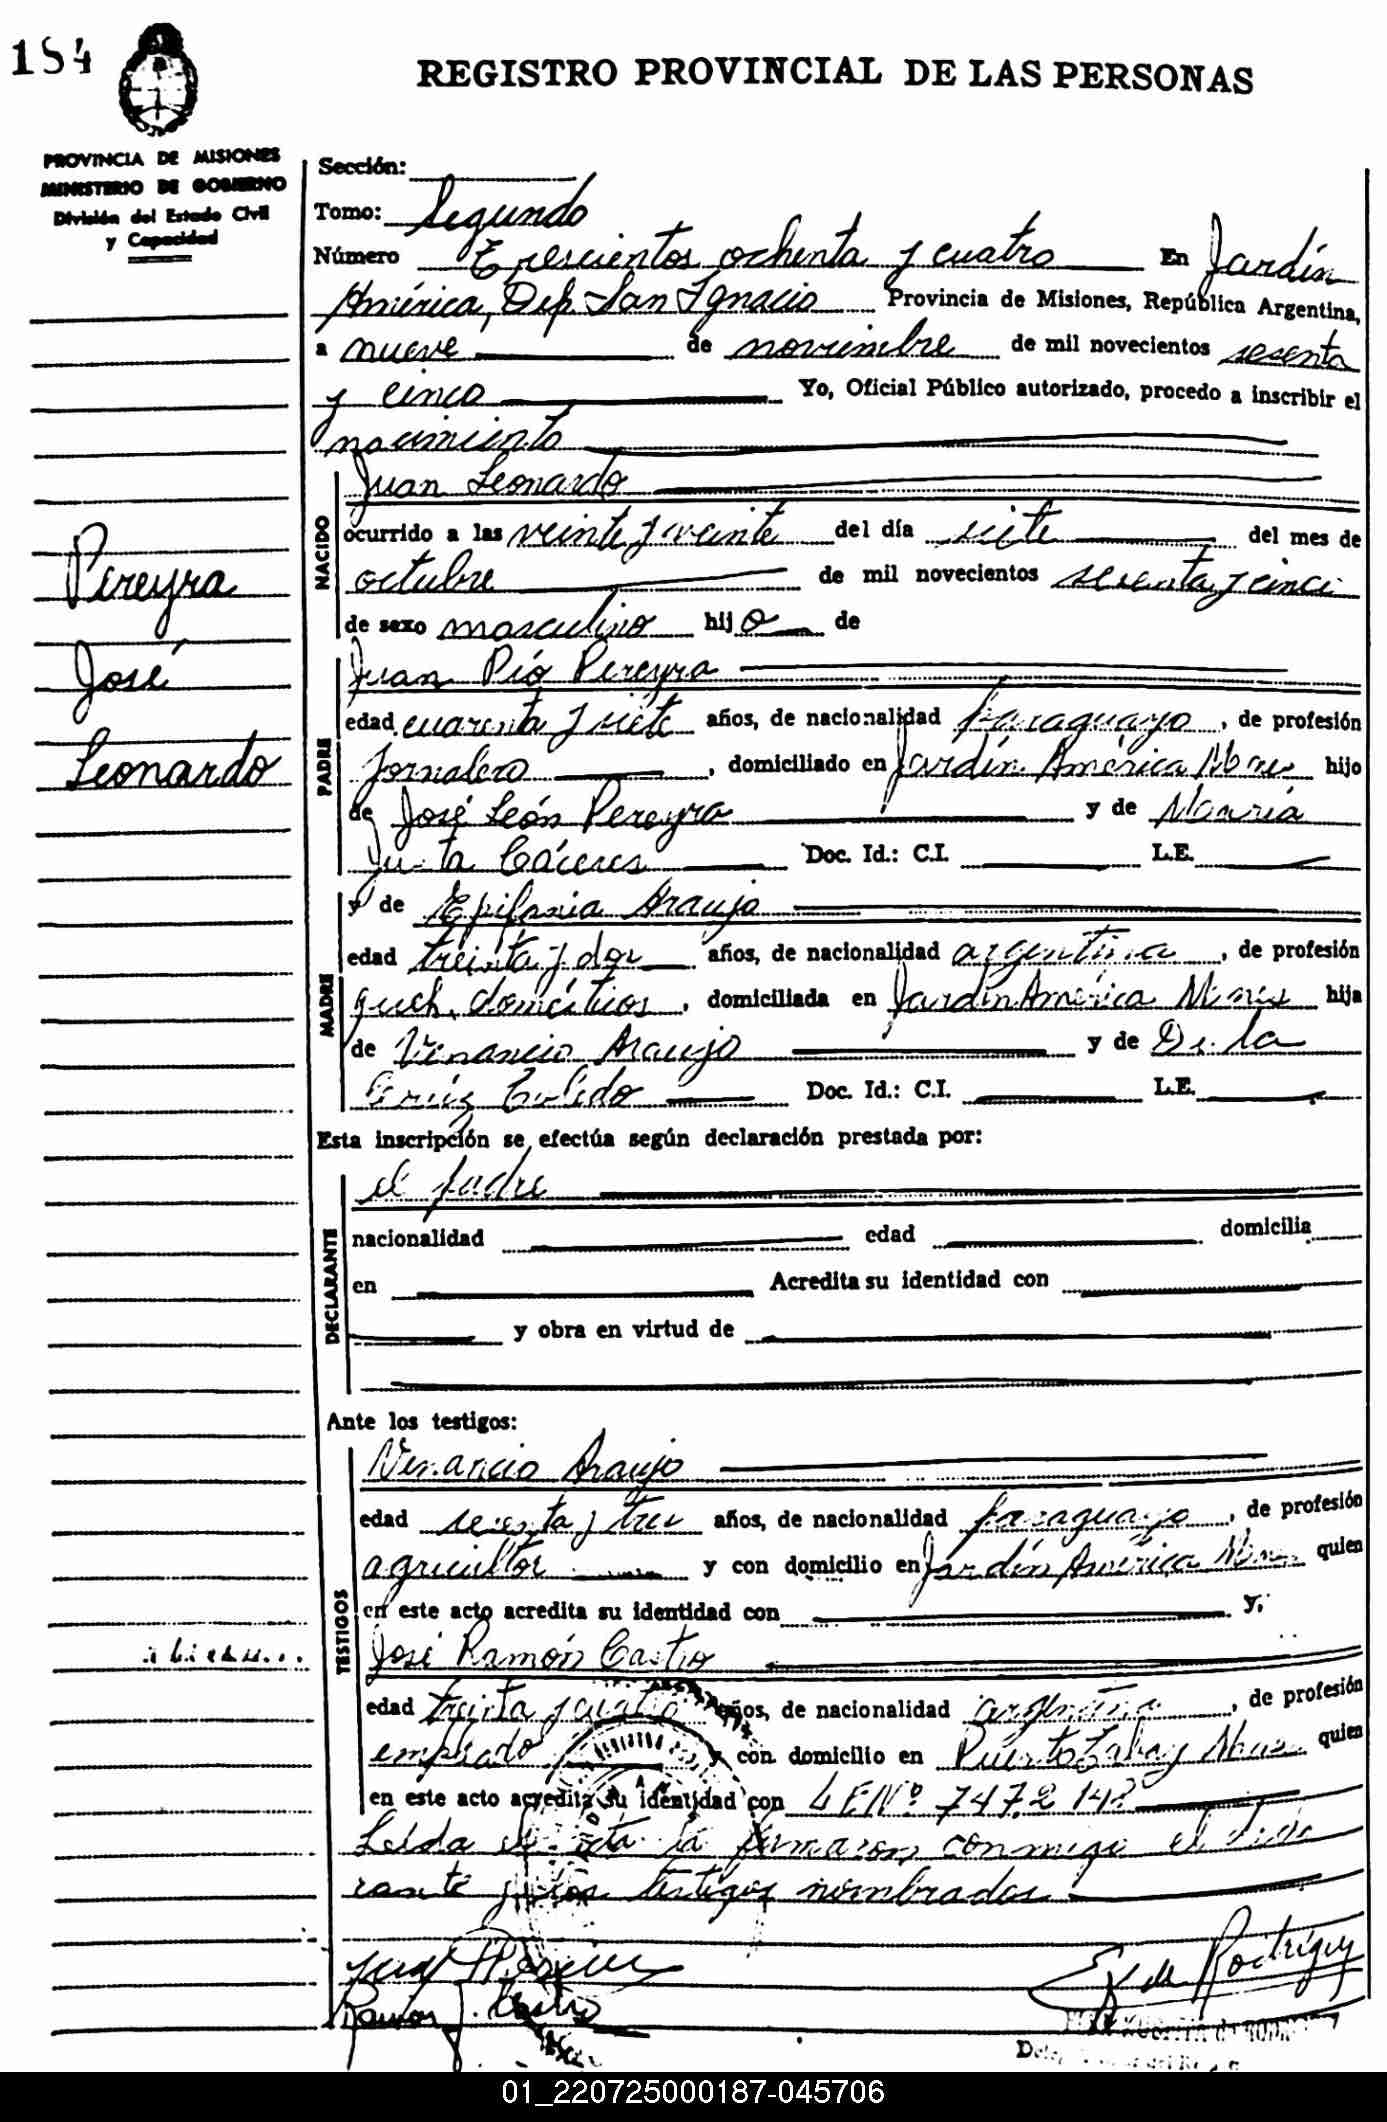 184
REGISTRO PROVINCIAL DE LAS PERSONAS
PROVINCIA DE MISIONES
MINISTERIO DE GOBIERNO
División del Estado Civil
y Capacidad
Sección:
Tomo: Segundo
Número Trescientos ochenta y cuatro En Jardín
América, Dep. San Ignacio Provincia de Misiones, República Argentina,
a nueve de noviembre de mil novecientos sesenta
y cinco Yo, Oficial Público autorizado, procedo a inscribir el
nacimiento
Juan Leonardo
NACIDO
ocurrido a las veinte y veinte del día siete del mes de
octubre de mil novecientos sesenta y cinco
de sexo masculino hijo de
Pereyra
José
Leonardo
Juan Pío Pereyra
PADRE
edad cuarenta y siete años, de nacionalidad paraguayo, de profesión
Jornalero, domiciliado en Jardín América Mnes hijo
de José León Pereyra y de María
Justa Cáceres Doc. Id.: C.I. L.E.
y de Epifania Araujo
MADRE
edad treinta y dos años, de nacionalidad argentina, de profesión
queh. domésticos, domiciliada en Jardín América Mnes hija
de Venancio Araujo y de De la
Cruz Toledo Doc. Id.: C.I. L.E.
Esta inscripción se efectúa según declaración prestada por:
el padre
DECLARANTE
nacionalidad edad domicilia
en Acredita su identidad con
y obra en virtud de
Ante los testigos:
Venancio Araujo
TESTIGOS
edad sesenta y tres años, de nacionalidad paraguayo, de profesión
agricultor y con domicilio en Jardín América Mnes quien
en este acto acredita su identidad con y,
José Ramón Castro
edad treinta y cuatro años, de nacionalidad argentina, de profesión
empleado y con domicilio en Puerto Tabay Mnes quien
en este acto acredita su identidad con L E Nº 747.2 142
Leída el acta la firmaron conmigo el decla
rante y los testigos nombrados
Juan Pereira
Ramon J. Castro
de Rodriguez
01_220725000187-045706